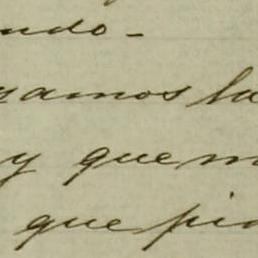 ndo-
zamos la
y que m
que pid